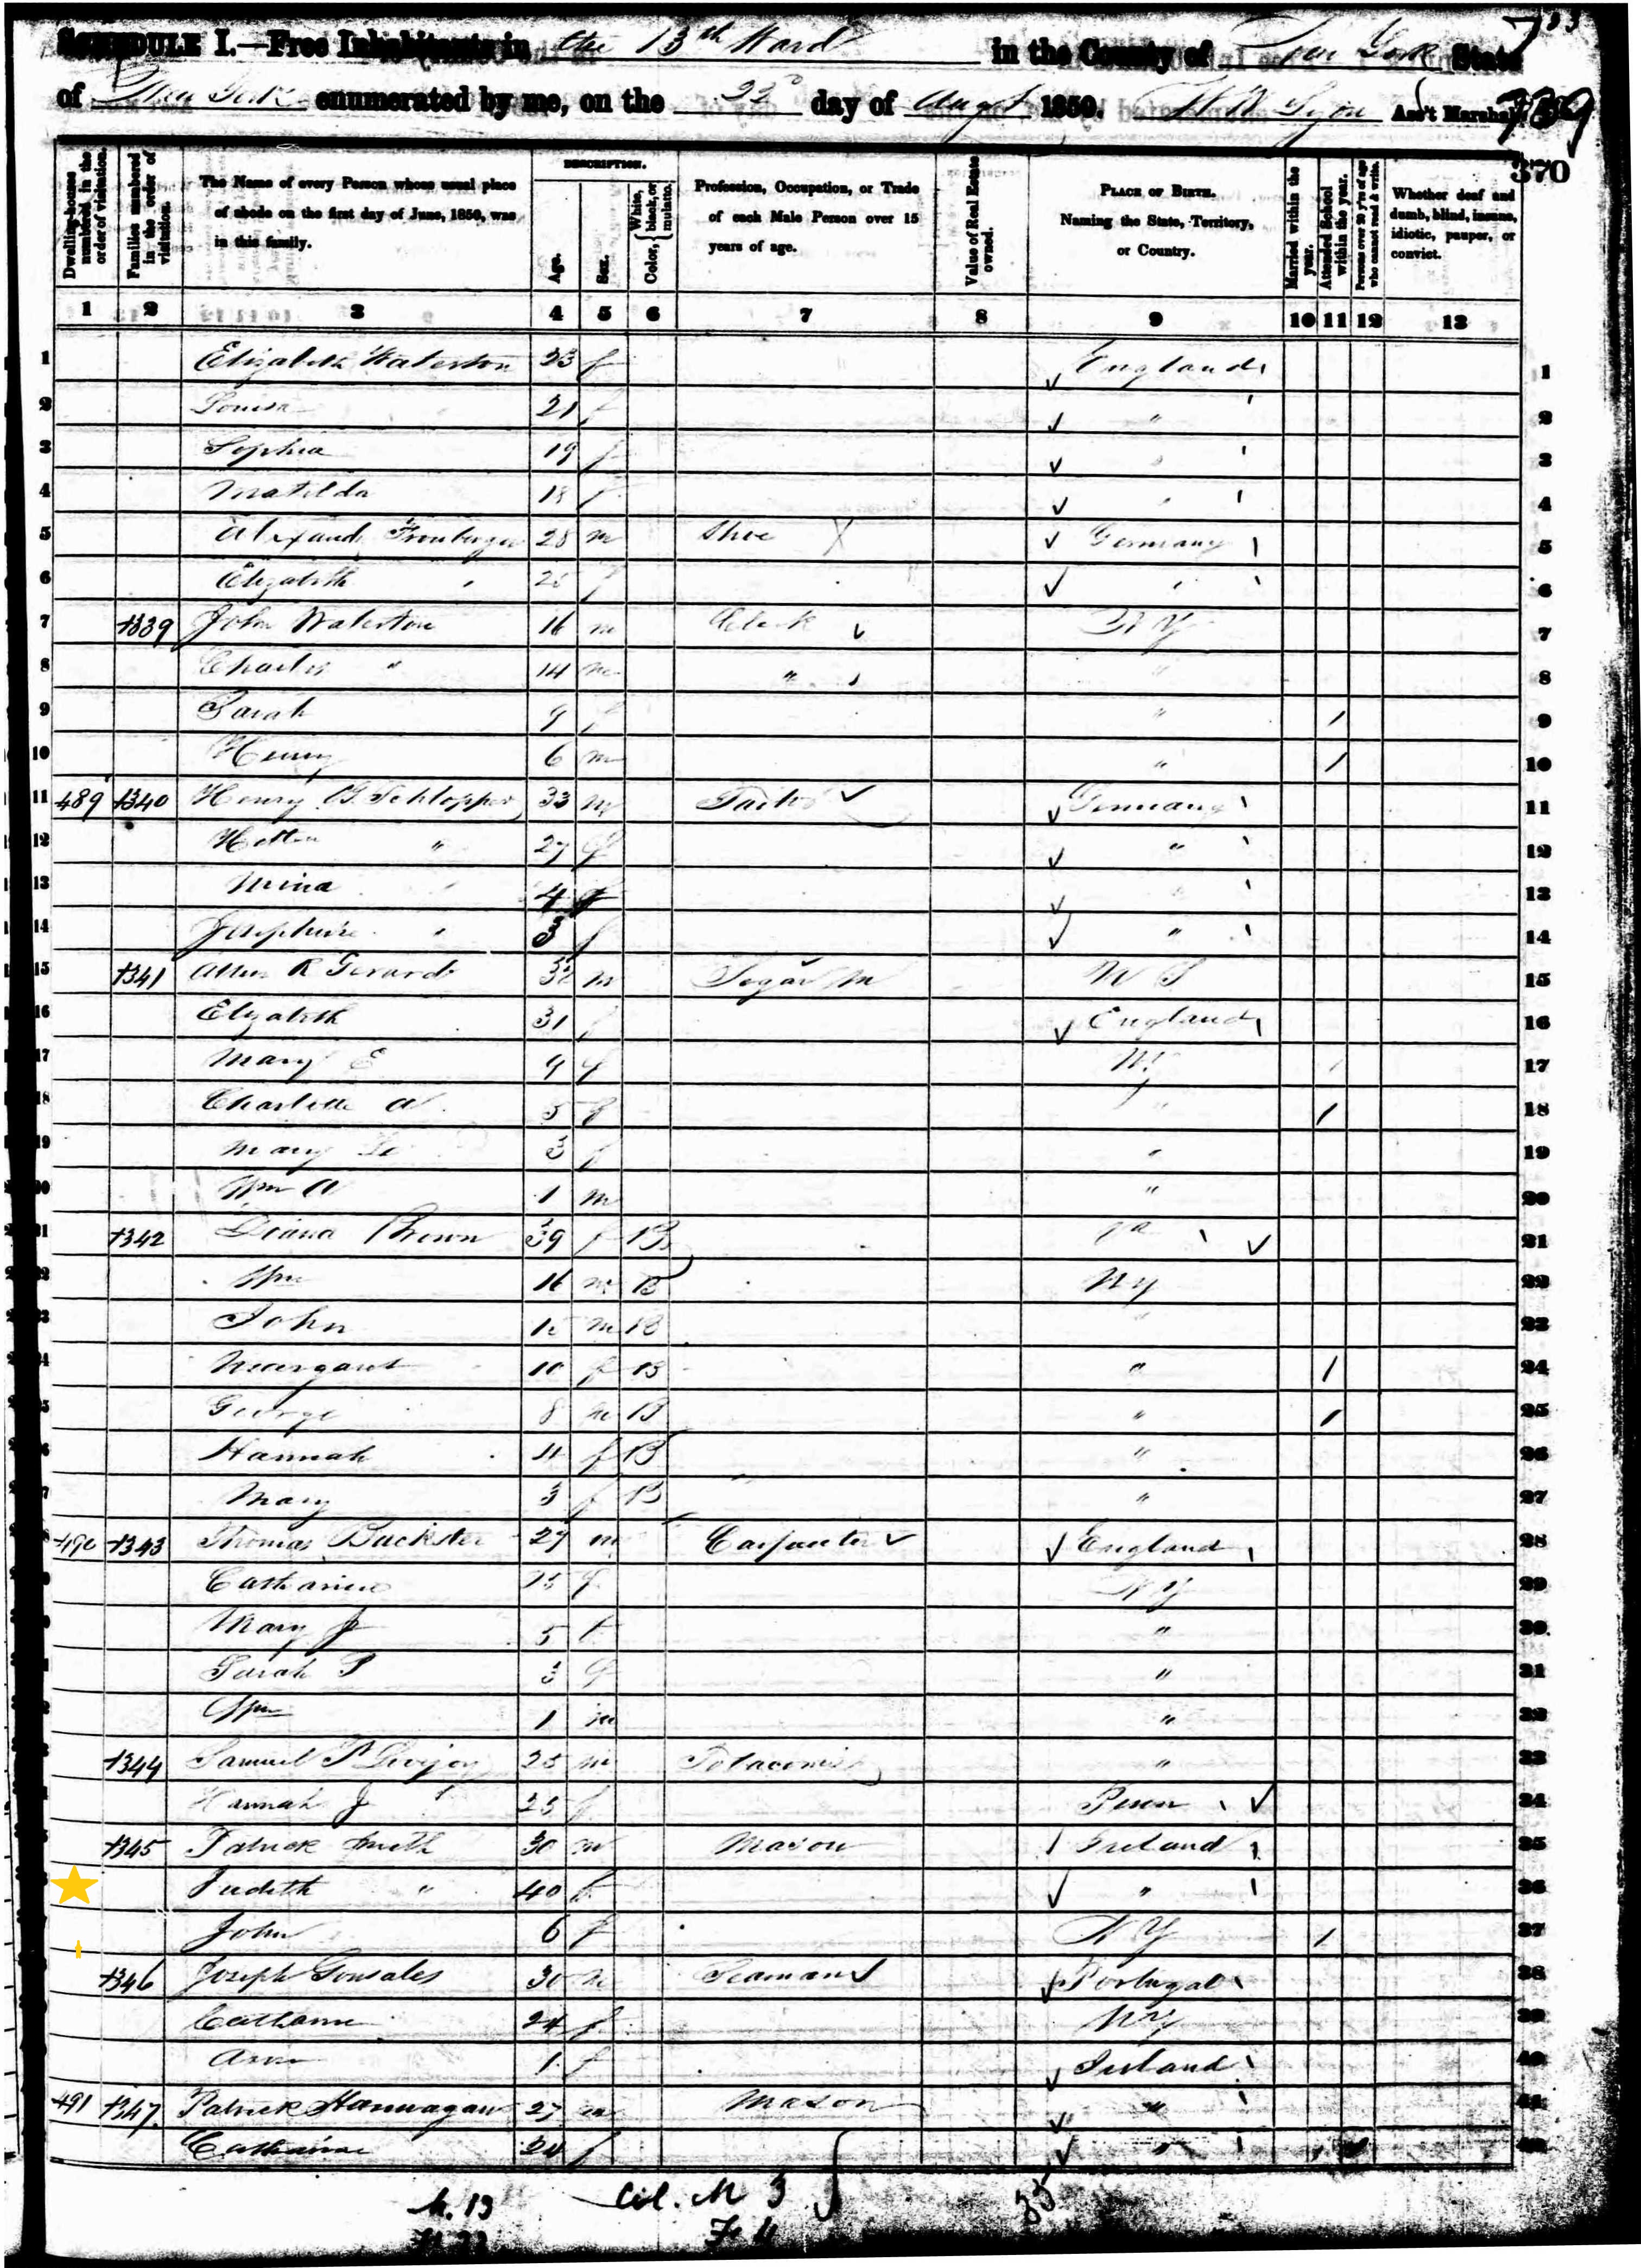 SCHEDULE I.—Free Inhabitants in the 13th Ward in the County of New York State
of New York enumerated by me, on the 22d day of Augt 1850. Lyon Ass't Marshal.
370
Dwelling-houses numbered in the order of visitation.
Families numbered in the order of visitation.
The Name of every Person whose usual place of abode on the first day of June, 1850, was in this family.
DESCRIPTION.
Age.
Sex.
Color, { White, black, or mulatto.
Profession, Occupation, or Trade of each Male Person over 15 years of age.
Value of Real Estate owned.
PLACE OF BIRTH. Naming the State, Territory, or Country.
Married within the year.
Attended School within the year.
Persons over 20 y'rs of age who cannot read & write.
Whether deaf and dumb, blind, insane, idiotic, pauper, or convict.
1 2 3 4 5 6 7 8 9 10 11 12 13
1 Elizabeth Waterton 23 f England 1
2 Louisa 21 f " 2
3 Sophia 19 f " 3
4 Matilda 18 f " 4
5 28 m Shoe X Germany 5
6 Elizabeth " f " 6
7 1339 John Waterton 16 m Clerk N Y 7
8 Charles " 14 m " " 8
9 Sarah 9 f " / 9
10 Henry 6 m " / 10
11 489 1340 Henry 33 m Tailor Germany 11
12 " 27 f " 12
13 Mina " 4 f " 13
14 Josephine " 3 f " 14
15 1341 R m Segar M 15
16 Elizabeth 31 f England 16
17 Mary E 9 f N Y / 17
18 Charlotte A 5 f " / 18
19 Mary 3 f " 19
20 Wm A 1 m " 20
21 1342 Diana Brown 39 f B 21
22 Wm 16 m B N Y 22
23 John m B " 23
24 Margaret 10 f B " / 24
25 George 8 m B " / 25
26 Hannah f B " 26
27 Mary 3 f B " 27
490 1343 Thomas Buckster 27 m Carpenter England 28
Catharine f N Y 29
Mary J 5 f " 30
Sarah 3 f " 31
Wm 1 m " 32
1344 Samuel 25 m " 33
Hannah J " 25 f Penn 34
1345 Patrick Smith 30 m Mason Ireland 35
Judith " 40 f " 36
John 6 f N Y / 37
1346 Joseph Gonsales 30 m Seaman Portugal 38
24 f N Y 39
1 f Ireland 40
491 1347 Patrick Hannagan 27 m Mason " 41
Catharine f " 42
M. 19 Col. M 3
F. 4